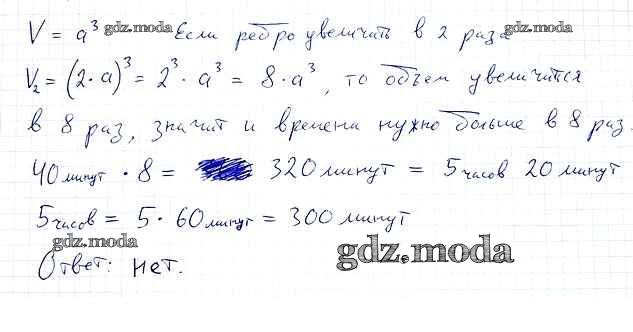 V = a³ gdz.moda Если ребро увеличить в 2 раза gdz.moda
V₂ = (2·a)³ = 2³ · a³ = 8·a³, то объем увеличится
в 8 раз, значит и времени нужно больше в 8 раз.
40 минут · 8 = 320 минут = 5 часов 20 минут
5 часов = 5 · 60 минут = 300 минут
gdz.moda
gdz.moda
Ответ: нет.